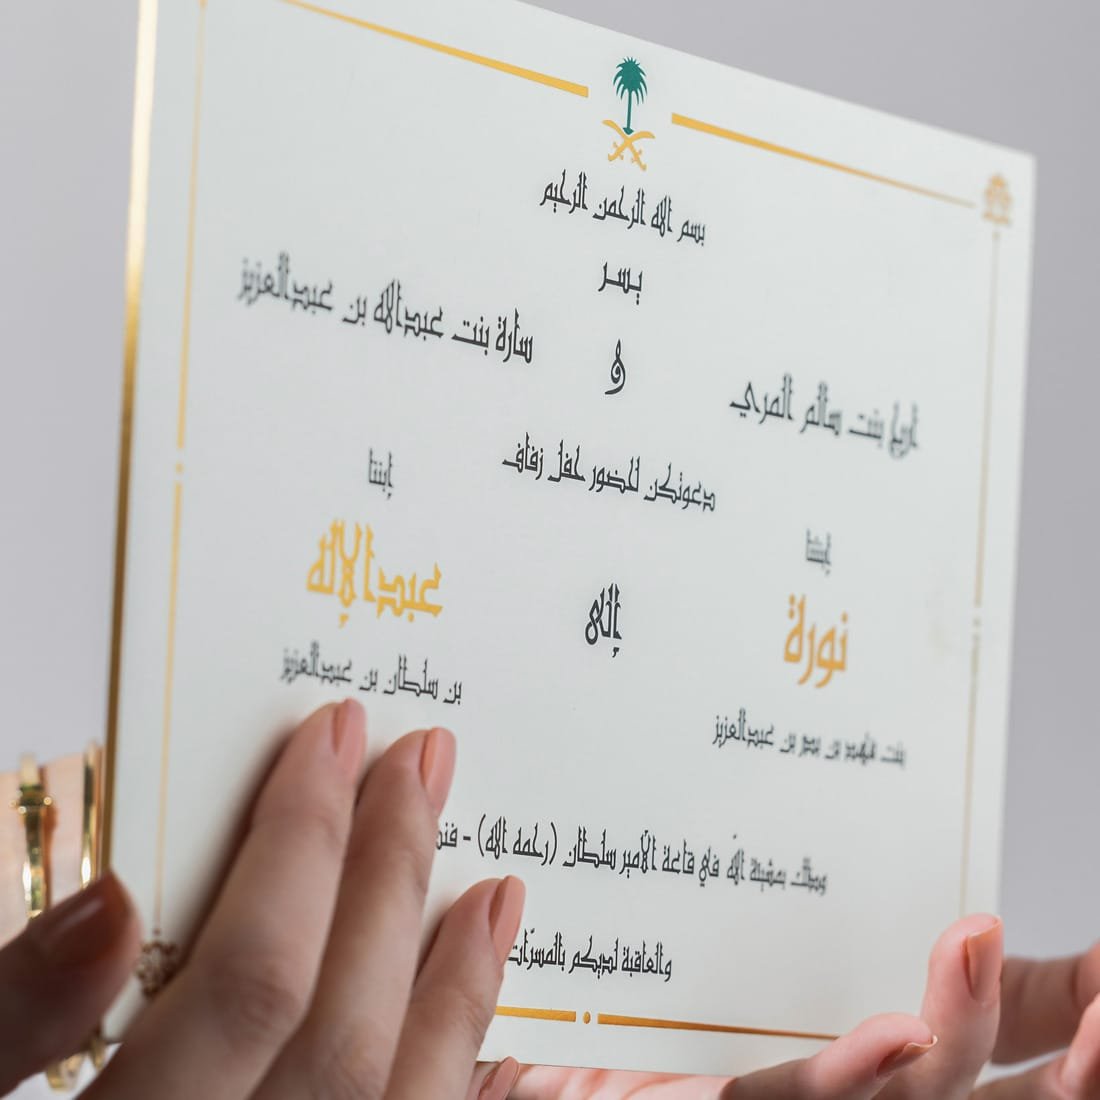 بسم الله الرحمن الرحيم
يسر
سارة بنت عبدالله بن عبدالعزيز
و
أريج بنت صالم المري
دعوتكن لحضور حفل زفاف
إبنتنا
نورة
بنت فهد بن بدر بن عبدالعزيز
إلى
إبننا
عبدالإله
بن سلطان بن عبدالعزيز
وذلك بمشيئة الله في قاعة الأمير سلطان (رحمه الله) -
والعاقبة لديكم بالمسرّات